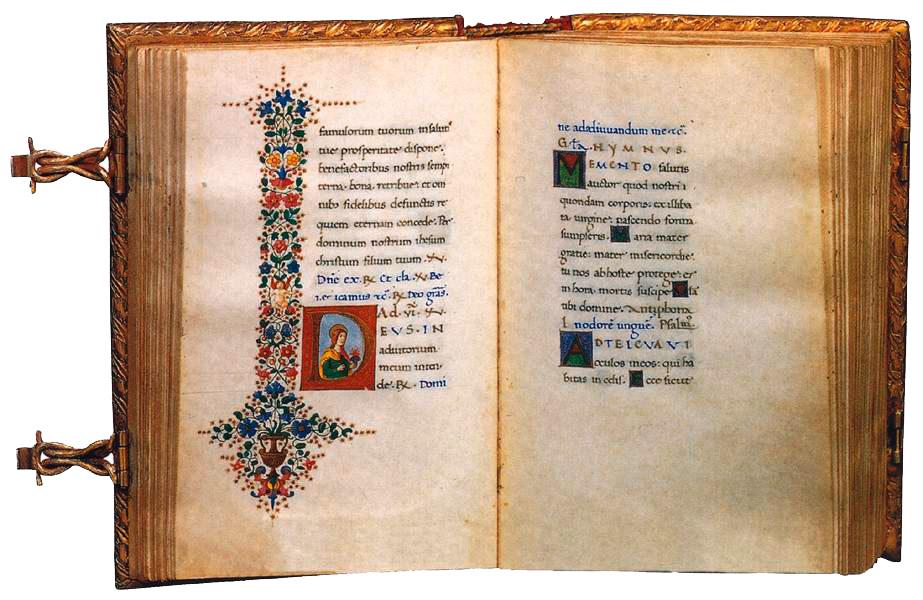 famulorum tuorum in salut
tue prosperitate dispone.
benefactoribus nostris sempi
terna bona retribue. et om
nibus fidelibus defunctis re
quiem eternam concede. Per
dominum nostrum ihesum
christum filium tuum.
Dñe ex. ℞ Et cla. Be
icamus ℞ Deo grãs.
Ad
DEUS. IN
adiutorium
meum inten
de. ℞. Domi
ne ad adiuvandum me.
HYMNUS.
MEMENTO salutis
auctor quod nostri
quondam corporis. ex illiba
ta virgine nascendo forma
sumpseris. Maria mater
gratie. mater misericordie.
tu nos ab hoste protege. et
in hora mortis suscipe.
tibi domine. Antiphona
In odorẽ unguẽ. Psal
AD TE LEVAVI
oculos meos. qui ha
bitas in celis. Ecce sicut